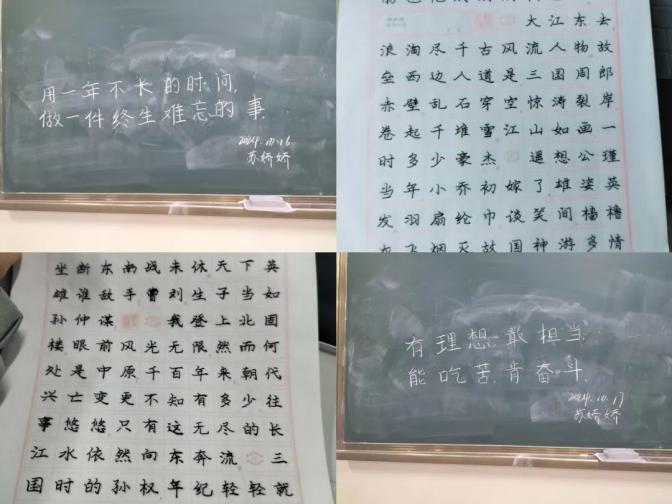 用一年不长的时间,
做一件终生难忘的事.
2024.10.16
苏娇娇
大江东去
浪淘尽千古风流人物故
垒西边人道是三国周郎
赤壁乱石穿空惊涛裂岸
卷起千堆雪江山如画一
时多少豪杰遥想公瑾
当年小乔初嫁了雄姿英
发羽扇纶巾谈笑间樯橹
飞烟灭故国神游多情
坐断东南战未休天下英
雄谁敌手曹刘生子当如
孙仲谋我登上北固
楼眼前风光无限然而何
处是中原千百年来朝代
兴亡变更不知有多少往
事悠悠只有这无尽的长
江水依然向东奔流三
国时的孙权年纪轻轻就
有理想.敢担当
能吃苦.肯奋斗.
2024.10.17
苏娇娇